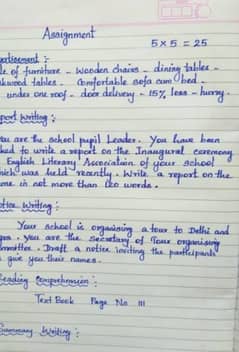 Assignment
5 × 5 = 25
of furniture - Wooden chairs - dining tables -
tables - Comfortable sofa cum bed -
under one roof - door delivery - 15% less - hurry.
Writing :
are the school pupil Leader. You have been
to write a report on the Inaugural ceremony
English Literary Association of your school
was held recently. Write a report on the
in not more than 120 words.
Writing :
Your school is organising a tour to Delhi and
you are the secretary of Tour organising
Draft a notice inviting the participants
give you their names.
Comprehension :
Text Book Page No 111
Writing :